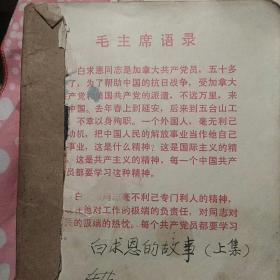 毛主席语录
白求恩同志是加拿大共产党员，五十多
了，为了帮助中国的抗日战争，受加拿大
产党和美国共产党的派遣，不远万里，来
中国。去年春上到延安，后来到五台山工
不幸以身殉职。一个外国人，毫无利己
动机，把中国人民的解放事业当作他自己
事业，这是什么精神？这是国际主义的精
这是共产主义的精神，每一个中国共产
员都要学习这种精神。
白
毫不利己专门利人的精神，
在他对工作的极端的负责任，对同志对
民的极端的热忱。每个共产党员都要学习
白求恩的故事（上集）